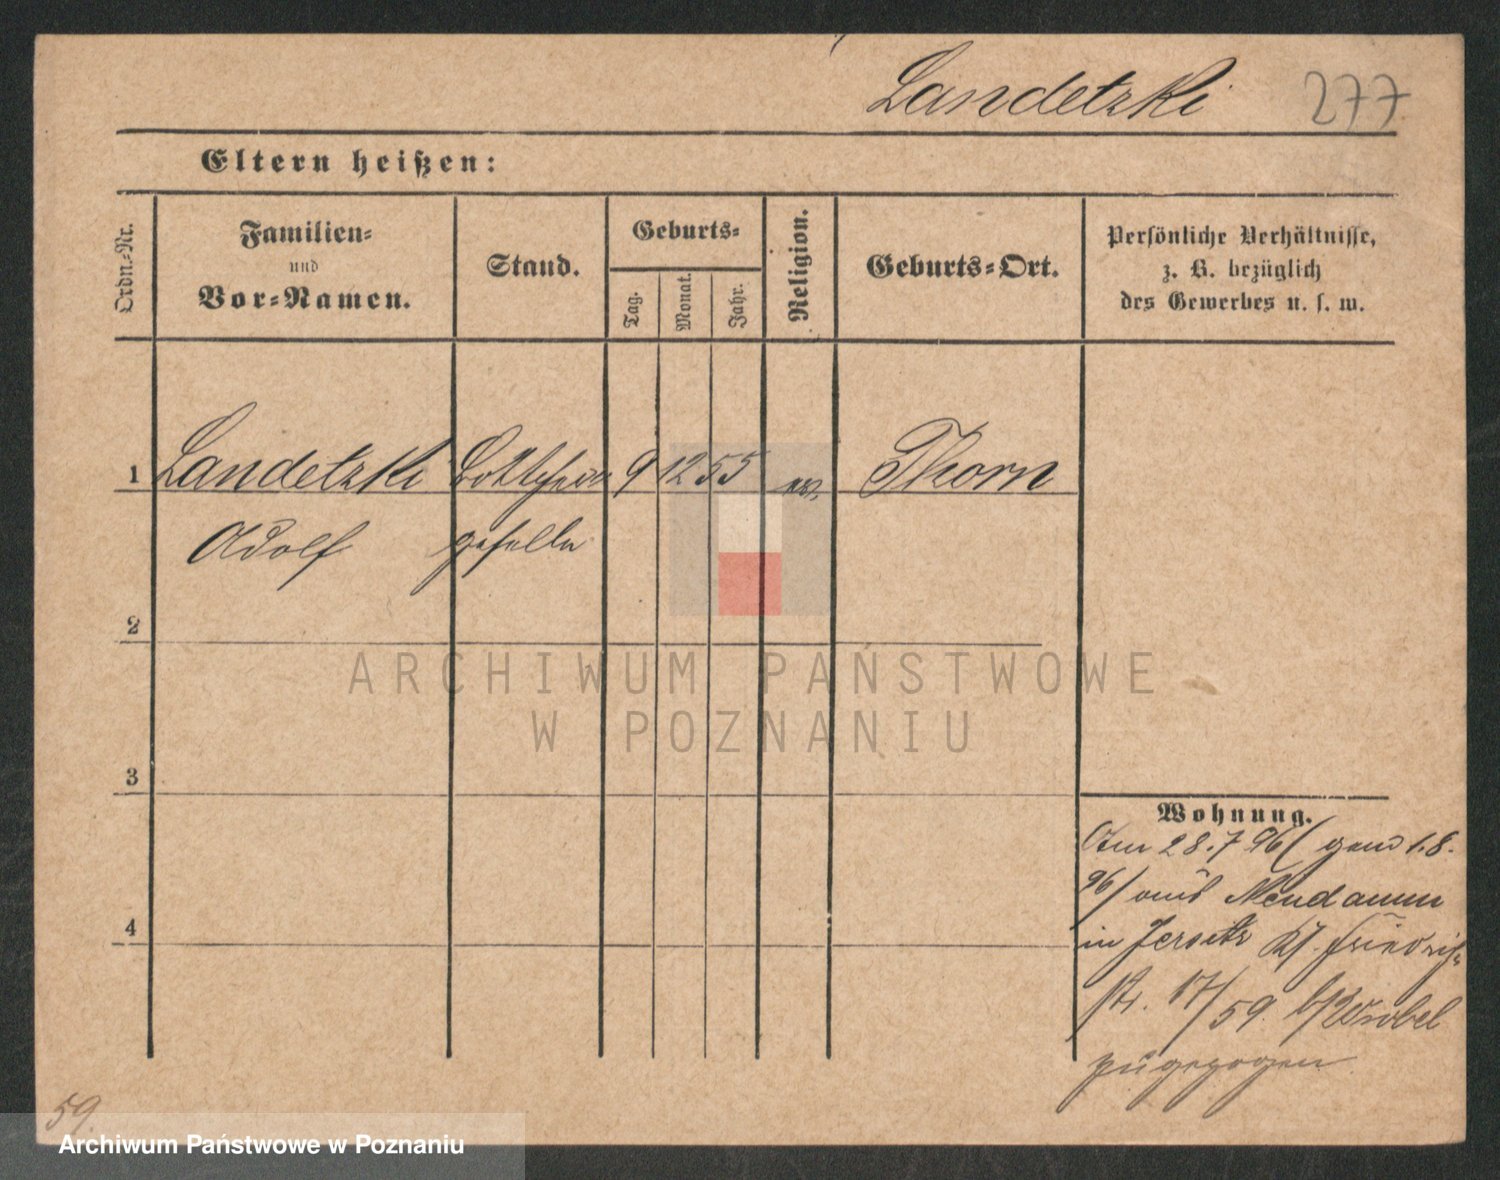 Landetzki 277
Eltern heißen:
Ordn.-Nr.
Familien-
und
Vor-Namen.
Stand.
Geburts-
Tag.
Monat.
Jahr.
Religion.
Geburts-Ort.
Persönliche Verhältnisse,
z. B. bezüglich
des Gewerbes u. s. w.
1 Landetzki 9 12 55 Thorn
Adolf geselle
2
ARCHIWUM PAŃSTWOWE
W POZNANIU
3
Wohnung.
Am 28.7 96/ gemd 1.8.
96/ aus Neudamm
4
in Jersitz Kf. Friedrich-
str. 17/59. b/ Wrobel
zugezogen
59.
Archiwum Państwowe w Poznaniu